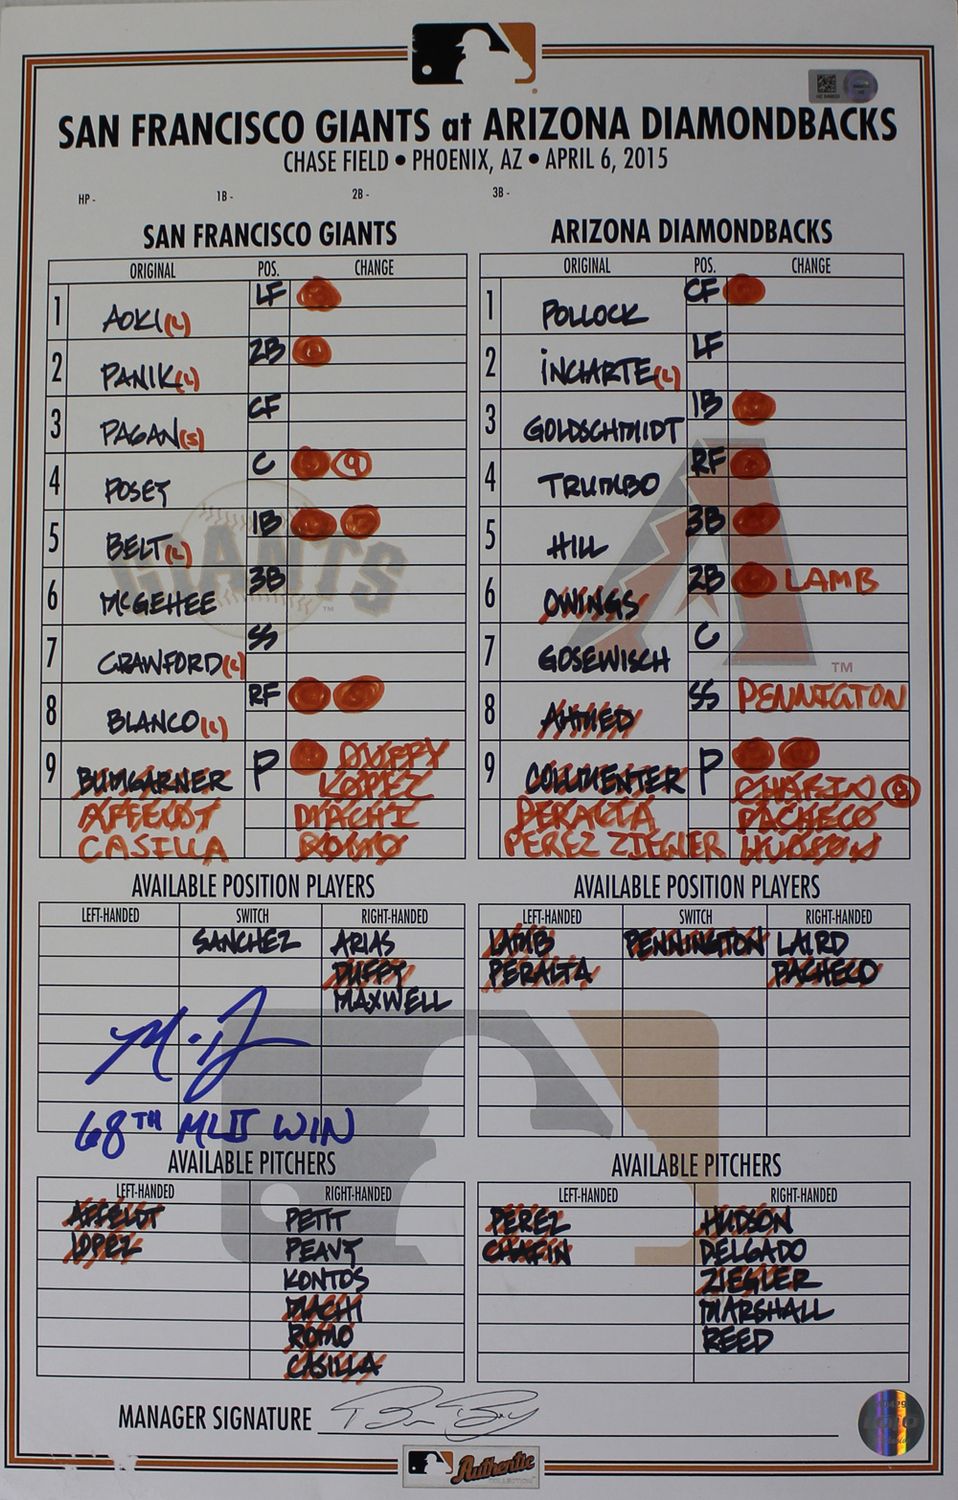 SAN FRANCISCO GIANTS at ARIZONA DIAMONDBACKS
CHASE FIELD • PHOENIX, AZ • APRIL 6, 2015
HP - 1B - 2B - 3B -
SAN FRANCISCO GIANTS
ORIGINAL POS. CHANGE
1 AOKI (L) LF
2 PANIK (L) 2B
3 PAGAN (S) CF
4 POSEY C
5 BELT (L) 1B
6 McGEHEE 3B
7 CRAWFORD (L) SS
8 BLANCO (L) RF
9 BUMGARNER P DUFFY
LOPEZ
AFFELDT MACHI
CASILLA ROMO
ARIZONA DIAMONDBACKS
ORIGINAL POS. CHANGE
1 POLLOCK CF
2 INCIARTE (L) LF
3 GOLDSCHMIDT 1B
4 TRUMBO RF
5 HILL 3B
6 OWINGS 2B LAMB
7 GOSEWISCH C
8 AHMED SS PENNINGTON
9 COLLMENTER P
CHAFIN
PERALTA PACHECO
PEREZ ZIEGLER HUDSON
AVAILABLE POSITION PLAYERS
LEFT-HANDED SWITCH RIGHT-HANDED
SANCHEZ ARIAS
DUFFY
MAXWELL
68TH MLB WIN
AVAILABLE POSITION PLAYERS
LEFT-HANDED SWITCH RIGHT-HANDED
LAMB PENNINGTON LAIRD
PERALTA PACHECO
AVAILABLE PITCHERS
LEFT-HANDED RIGHT-HANDED
AFFELDT PETIT
LOPEZ PEAVY
KONTOS
MACHI
ROMO
CASILLA
AVAILABLE PITCHERS
LEFT-HANDED RIGHT-HANDED
PEREZ HUDSON
CHAFIN DELGADO
ZIEGLER
MARSHALL
REED
GIANTS
A
TM
MANAGER SIGNATURE
Authentic
COLLECTION